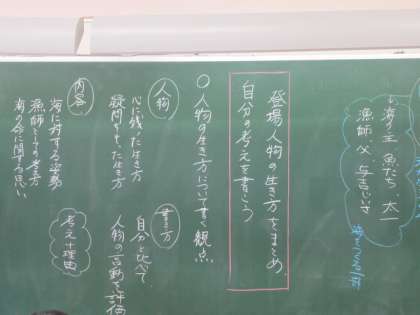 海の主 魚たち 太一
漁師 父 与吉じいさ
登場人物の生き方をまとめ、
自分の考えを書こう
○人物の生き方について書く観点
人物
心に残った生き方
疑問をもった生き方
書き方
自分と比べて
人物の言動を評価
内容
海に対する姿勢
漁師としての生き方
海の命に関する思い
考え+理由